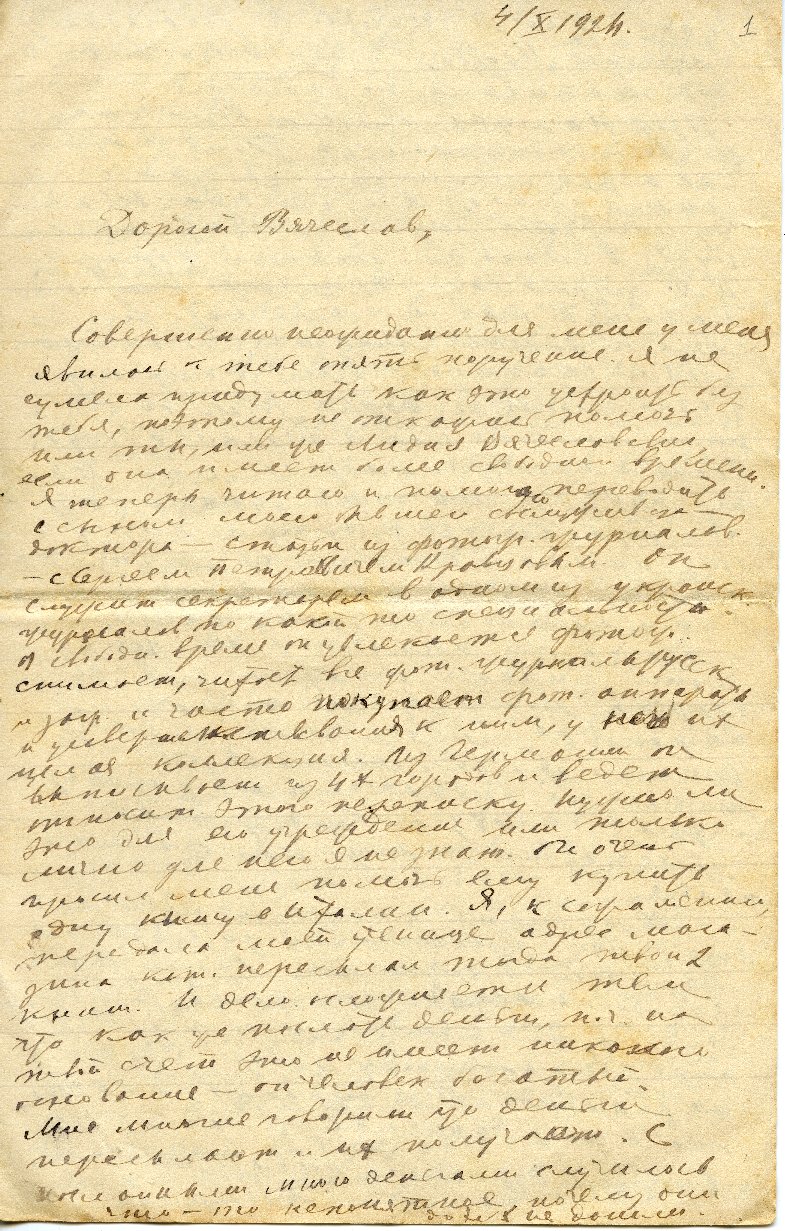 4/X 192
1
Дорогой Вячеслав,
Совершенно неожиданно для меня у меня
явилось к тебе опять поручение. Я не
сумела придумать как это устроить без
тебя, поэтому не откажи помочь
или ты, или же Лидия Вячеславовна,
если она имеет более свободн. времени.
Я теперь читаю и помогаю переводить
с сыном моего бывшего
доктора — статьи из фотогр. журналов.
— с Сергеем Петровичем Он
служит секретарем в одном из украинск.
журналов по какой то специальности.
В свободн. время он увлекается фотогр.
снимает, читает все фот. журналы русск.
и загр. и часто покупает фот. аппараты
и усовершенствования к ним, у него их
целая коллекция. Из Германии он
выписывает из 4х городов и ведет
относит. этого переписку. Нужно ли
это для его учреждения или только
лично для него я не знаю. Он очень
просил меня помочь ему купить
одну книгу в Италии. Я, к сожалению,
передала моей ученице адрес мага-
зина кот. пересылал тогда твои 2
книги. И дело осложняется тем
что как же послать деньги, п.ч. на
твой счет это не имеет никакого
основание — он человек богатый.
Мне многие говорили что деньги
пересылают и их получают. С
посланными мною деньгами случилось
что-то непонятное, почему они
не дошли.